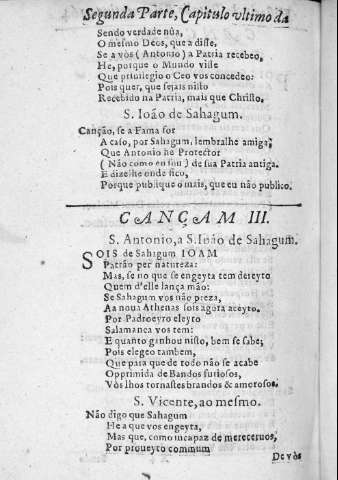 Segunda Parte, Capitulo vltimo da
Sendo verdade nũa,
O mesmo Deos, que a disse,
Se a vòs (Antonio) a Patria recebeo,
He, porque o Mundo visse
Que priuilegio o Ceo vos concedeo:
Pois quer, que sejais nisto
Recebido na Patria, mais que Christo.
S. Ioão de Sahagum.
Canção, se a Fama for
A caso, por Sahagum, lembralhe amiga,
Que Antonio he Protector
(Não como eu sou) de sua Patria antiga.
E dizelhe onde fico,
Porque publique o mais, que eu não publico.
CANÇAM III.
S. Antonio, a S. Ioão de Sahagum.
SOIS de Sahagum IOAM
Patrão per natureza:
Mas, se no que se engeyta tem dereyto
Quem d'elle lança mão:
Se Sahagum vos não preza,
Aa noua Athenas sois agora aceyto.
Por Padroeyro eleyto
Salamanca vos tem:
E quanto ganhou nisto, bem se sabe;
Pois elegeo tambem,
Que para que de todo não se acabe
Opprimida de Bandos furiosos,
Vòs lhos tornastes brandos & amorosos.
S. Vicente, ao mesmo.
Não digo que Sahagum
He a que vos engeyta,
Mas que, como incapaz de mereceruos,
Por proueyto commum
De vòs